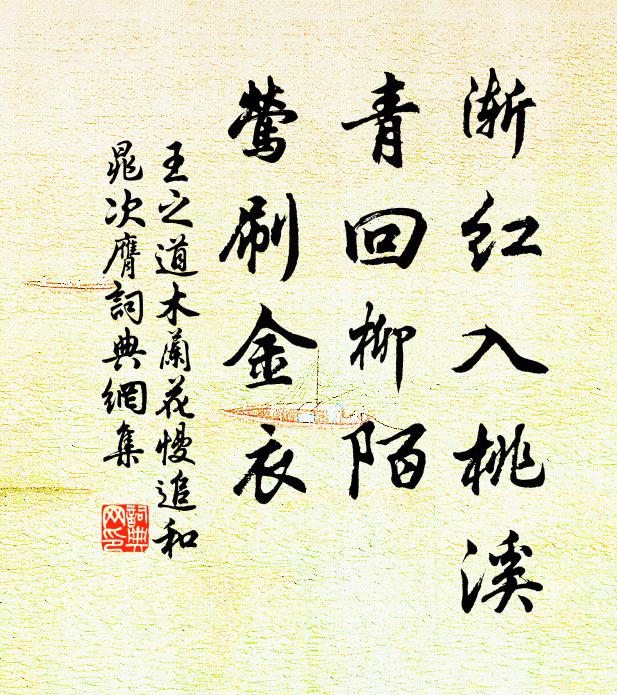 渐红入桃溪
青回柳陌
莺刷金衣
王之道木蘭花慢追和
晁次膺詞典網集
詞典
网印